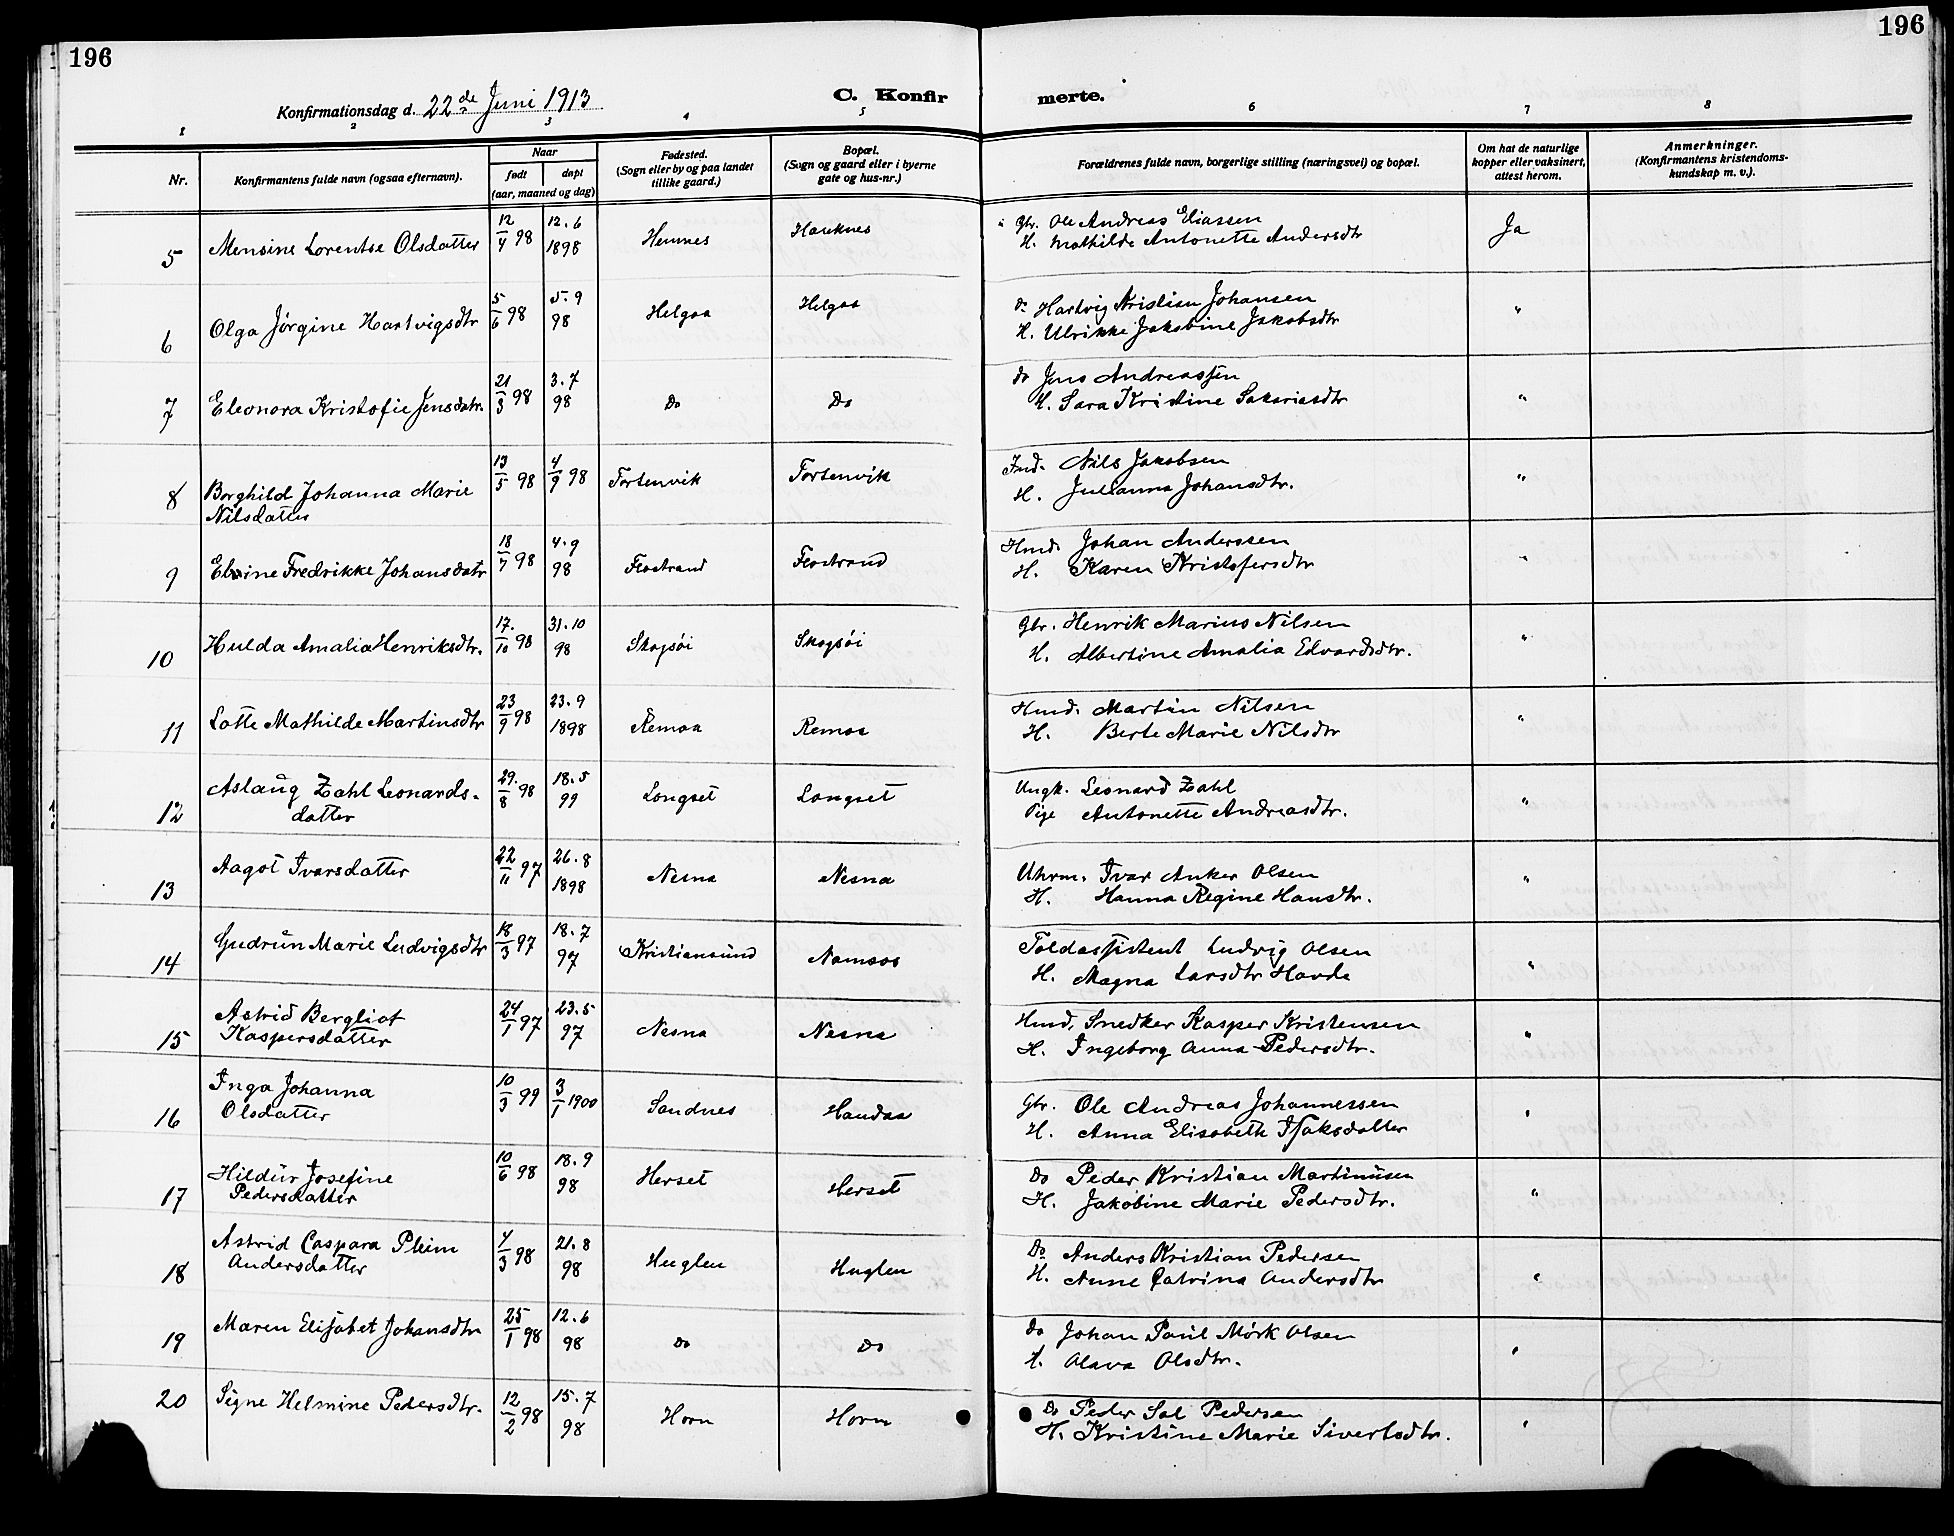 196
196
Konfirmationsdag d. 22de Juni 1913
C. Konfir
merte.
1 2 3 4 5 6 7 8
Nr.
Konfirmantens fulde navn (ogsaa efternavn).
Naar
født
døpt
(aar, maaned og dag)
Fødested.
(Sogn eller by og paa landet
tillike gaard.)
Bopæl.
(Sogn og gaard eller i byerne
gate og hus-nr.)
Forældrenes fulde navn, borgerlige stilling (næringsvei) og bopæl.
Om hat de naturlige
kopper eller vaksinert,
attest herom.
Anmerkninger.
(Konfirmantens kristendoms-
kundskap m. v.).
5 Mensine Lorentse Olsdatter 12/4 98 12.6 1898 Hemnes Hauknes Gbr. Ole Andreas Eliassen Ja
H. Mathilde Antonette Andersdtr
6 Olga Jørgine Hartvigsdtr 5/6 98 5.9 98 Helgaa Helgaa Do Hartvig Kristian Johansen "
H. Ulrikke Jakobine Jakobsdtr
7 Eleonora Kristofie Jensdatr. 21/3 98 3.7 98 Do Do do Jens Andreassen "
H. Sara Kristine Sakariasdtr
8 Borghild Johanna Marie 13/5 98 4/9 98 Fortenvik Fortenvik Ind. Nils Jakobsen "
Nilsdatter H. Julianna Johansdtr.
9 Fredrikke Johansdatr 18/7 98 4.9 98 Flostrand Flostrand Hmd. Johan Anderssen "
H. Karen Kristofersdtr
10 Hulda Amalia Henriksdtr. 17/10 98 31.10 98 Skogsøi Skogsøi Gbr. Henrik Marius Nilsen "
H. Albertine Amalia Edvardsdtr.
11 Lotte Mathilde Martinsdtr 23/9 98 23.9 1898 Remaa Remaa Hmd. Martin Nilsen "
H. Berte Marie Nilsdtr
12 Aslaug Zahl Leonards- 29/8 98 18.5 99 Longset Longset Ungk. Leonard Zahl "
datter Pige Antonette Andreasdtr.
13 Aagot Ivarsdatter 22/11 97 26.8 1898 Nesna Nesna Uhrm. Ivar Anker Olsen "
H. Hanna Regine Hansdtr.
14 Gudrun Marie Ludvigsdtr 18/3 97 18.7 97 Kristiansund Namsos Toldassistent Ludvig Olsen "
H. Magna Larsdtr Havde
15 Astrid Bergliot 24/1 97 23.5 97 Nesna Nesna Hmd, Snedker Kasper Kristensen "
Kaspersdatter H. Ingeborg Anna Pedersdtr.
16 Inga Johanna 10/3 99 3/1 1900 Sandnes Handaa Gbr. Ole Andreas Johannessen "
Olsdatter H. Anna Elisabeth Isaksdatter
17 Hildur Josefine 10/6 98 18.9 98 Herset Herset Do Peder Kristian Martinusen "
Pedersdatter H. Jakobine Marie Pedersdtr.
18 Astrid Caspara Pleim 7/3 98 21.8 98 Huglen Huglen Do Anders Kristian Pedersen "
Andersdatter H. Anne Catrina Andersdtr
19 Maren Elisabet Johansdtr 25/1 98 12.6 98 Do Do do Johan Paul Mørk Olsen "
H. Olava Olsdtr.
20 Signe Helmine Pedersdtr. 12/2 98 15.7 98 Horn Horn Do Peder Sal Pedersen "
H. Kristine Marie Sivertsdtr.